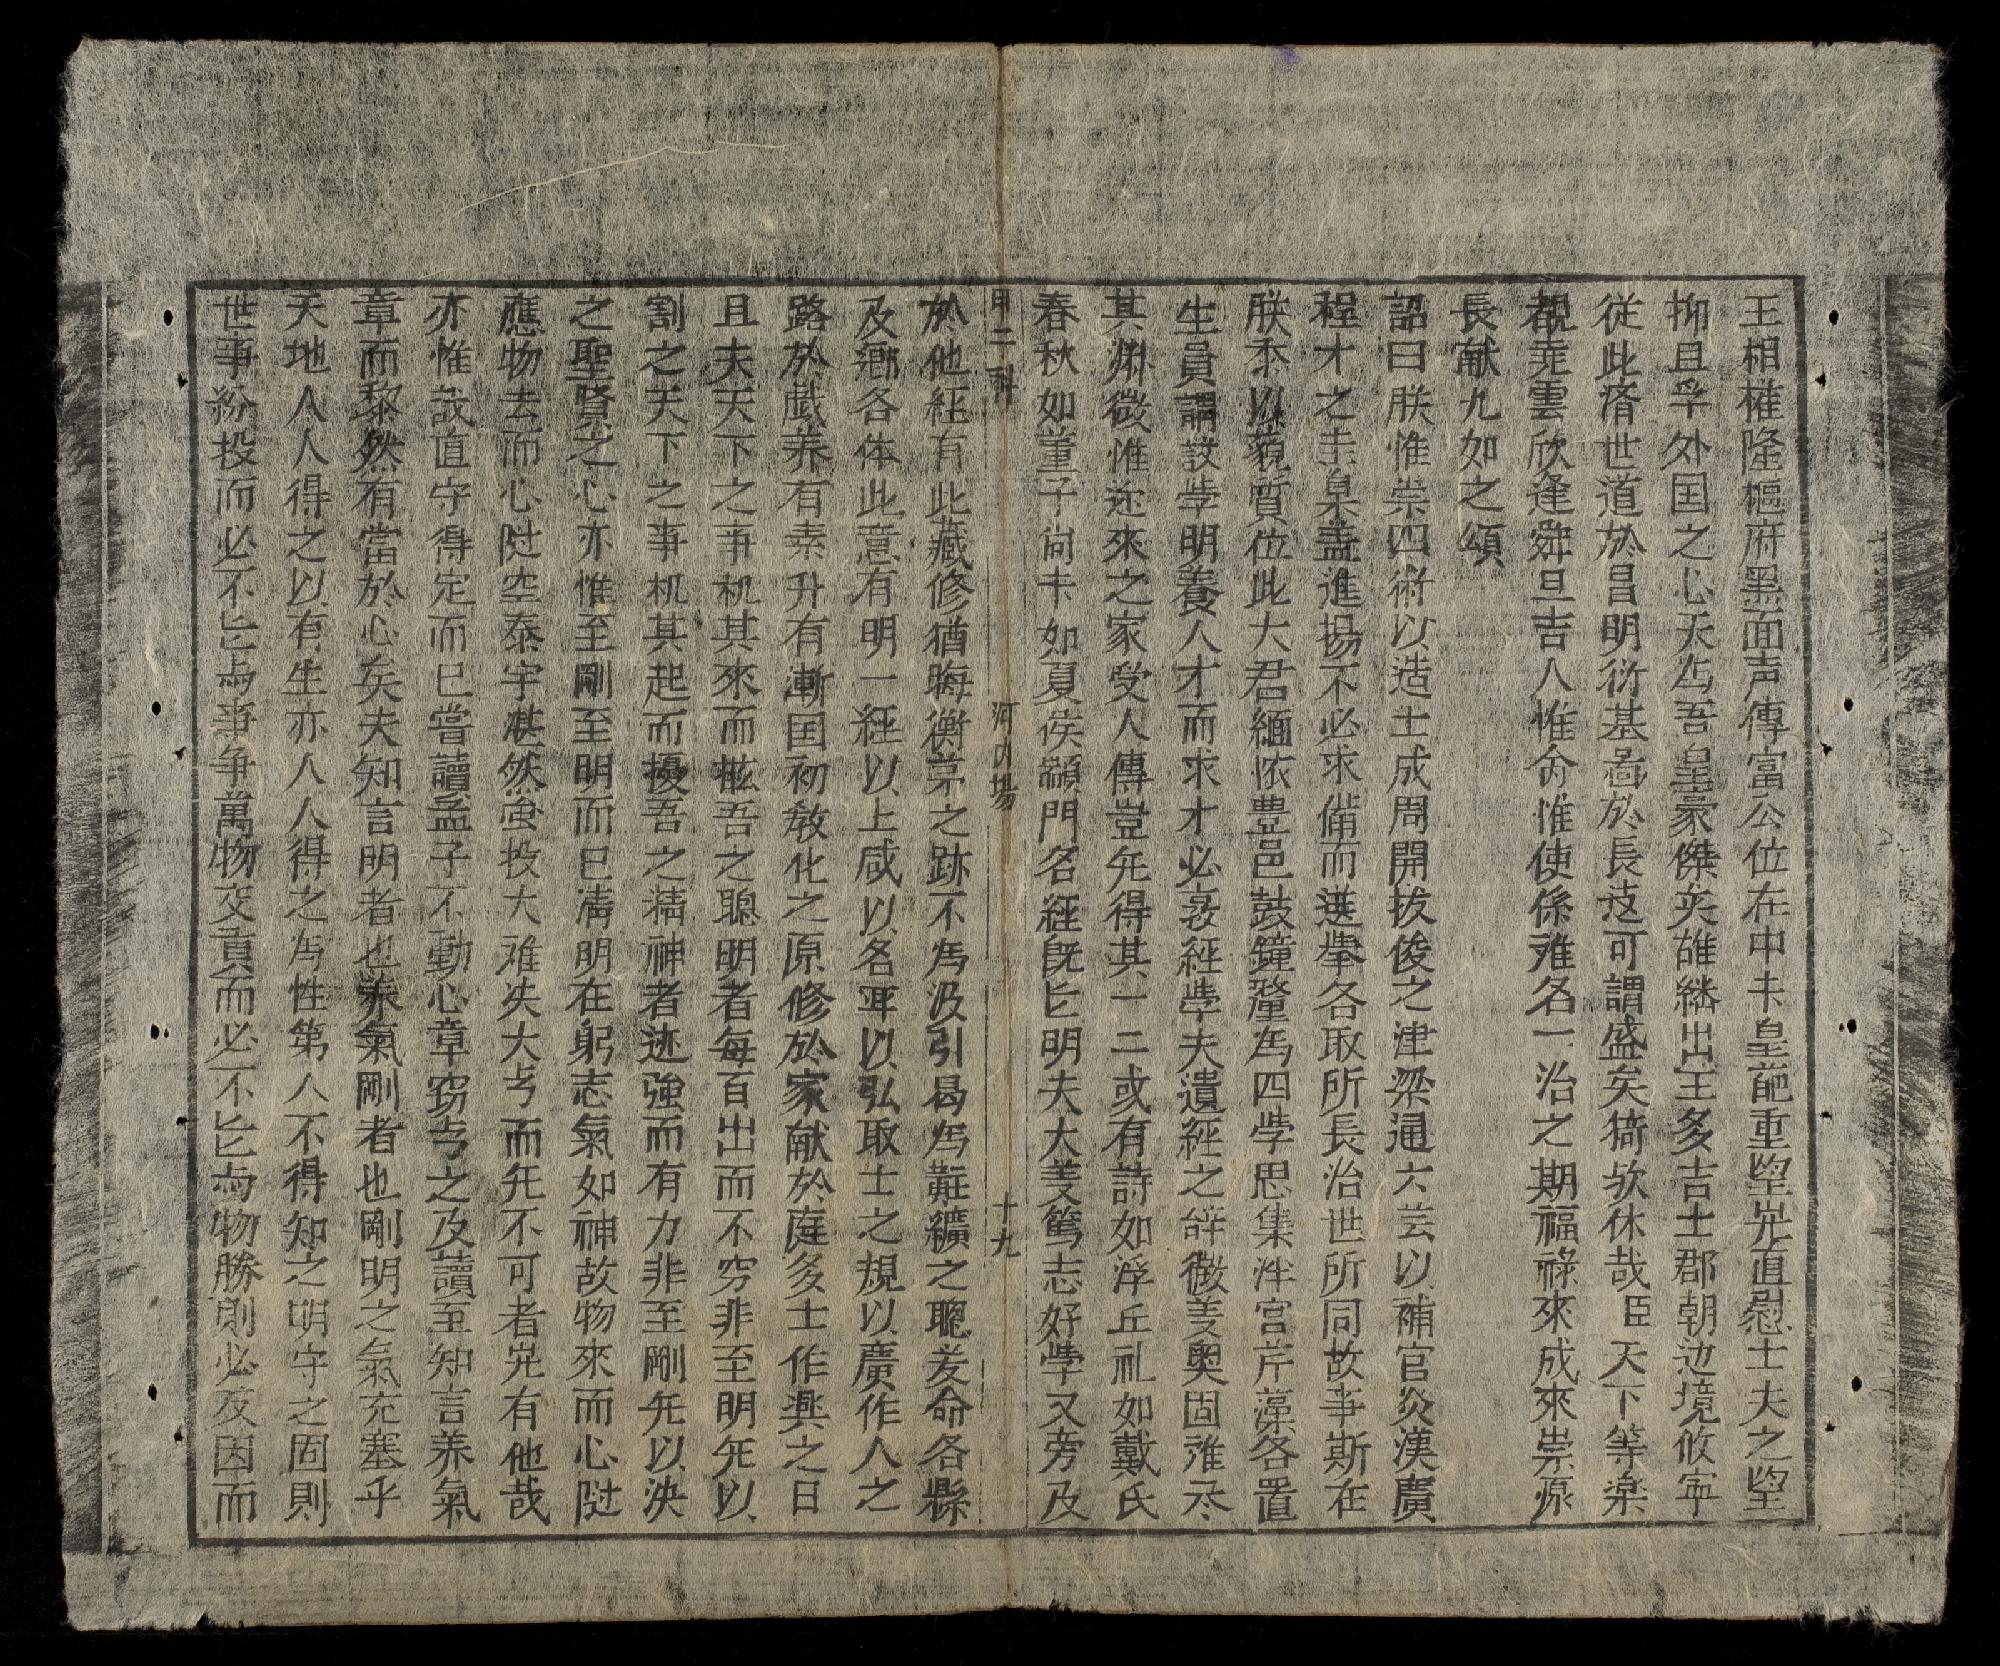 王相權隆樞府黑面声傳富公位在中未皇葩重望岩直慰士夫之望
抑且孚外国之心天为吾皇豪傑英雄繙出王多吉士郡朝边境攸寧
從此濟世道於昌明衍基啚於長远可謂盛矣猗欤休哉臣天下等楽
覩尭雲欣逢舜旦吉人惟命惟使係难名一治之期福祿來成來崇源
長献九如之頌
詔曰朕惟崇四術以造士成周開拔俊之津梁通六芸以補官炎漢廣
程才之圭臬盖進揚不必求備而選举各取所長治世所同故事斯在
朕丕以藐質位此大君緬怀豊邑鼓鐘釐为四學思集泮宫芹藻各置
生員謂設學明養人才而求才必敦經學夫遺經之辞微美奥固难尽
其淵微惟迩來之家受人傳豈无得其一二或有詩如浮丘礼如戴氏
春秋如董子尚书如夏侯顓門名經既匕明夫大美篤志好學又旁及
甲二科　河内場　十九
於他經有此藏修猶晦衡茅之跡不为汲引曷为黈纊之聰爰命各縣
及鄉各体此意有明一經以上咸以名耳以弘取士之規以廣作人之
路於戲养有素升有漸国初教化之原修於家献於庭多士作興之日
且夫天下之事机其來而眩吾之聰明者每百出而不穷非至明无以
割之天下之事机其起而擾吾之精神者迹強而有力非至剛无以决
之聖賢之心亦惟至剛至明而已清明在躬志氣如神故物來而心随
應物去而心随空泰宇湛然虽投大难决大亏而无不可者岂有他哉
亦惟説直守得定而已嘗讀孟子不動心章窃亏之及讀至知言养氣
章而黎然有當於心矣夫知言明者也养氣剛者也剛明之氣充塞乎
天地人人得之以有生亦人人得之为性第人不得知之明守之固則
世事紛投而必不匕与事争萬物交貢而必不匕与物勝則必反因而